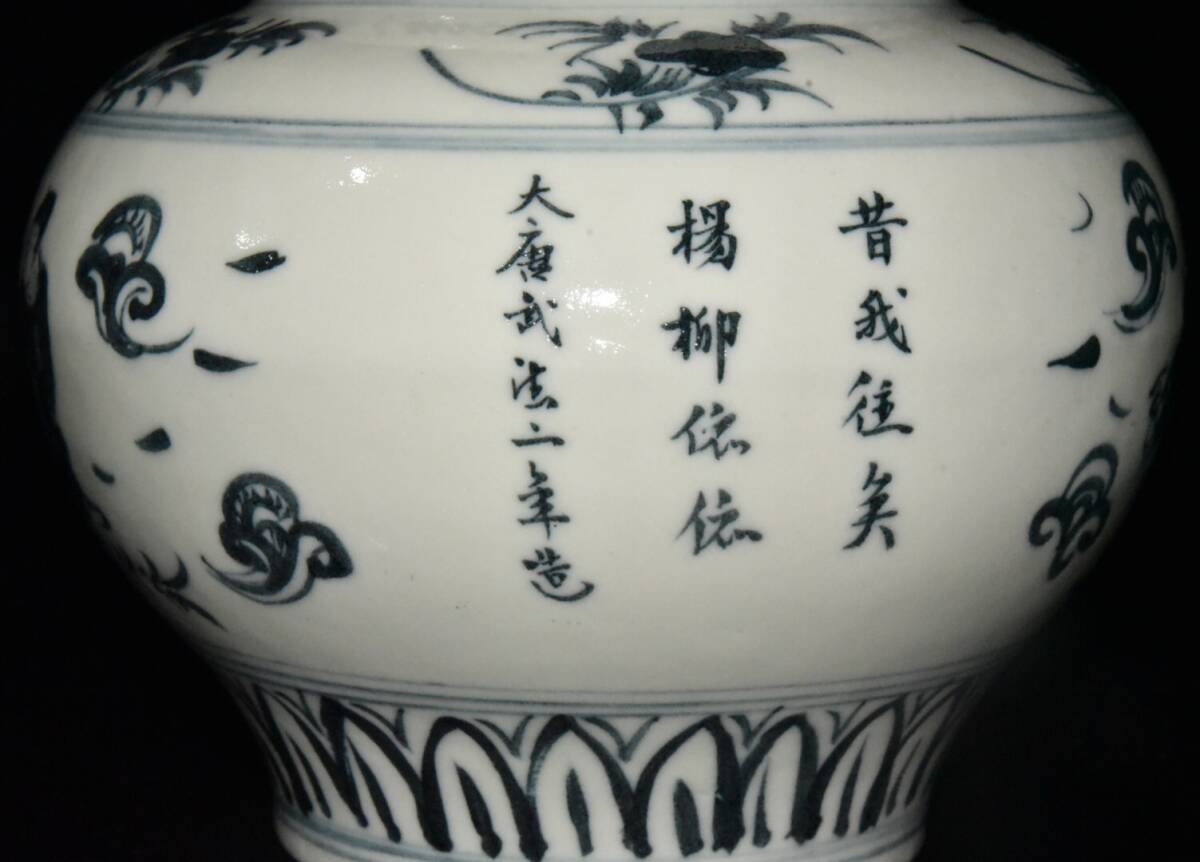 昔我往矣
楊柳依依
大唐武德二年造